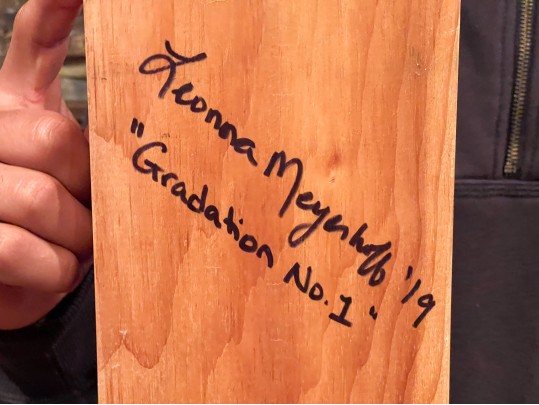 Leonna Meyerhoff '19
"Gradation No. 1"